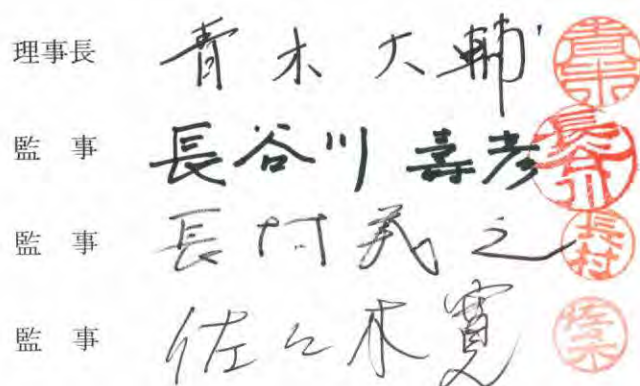 理事長 青木大輔 青木
監 事 長谷川壽彦 長谷川
監 事 長村義之 長村
監 事 佐々木寛 佐々木